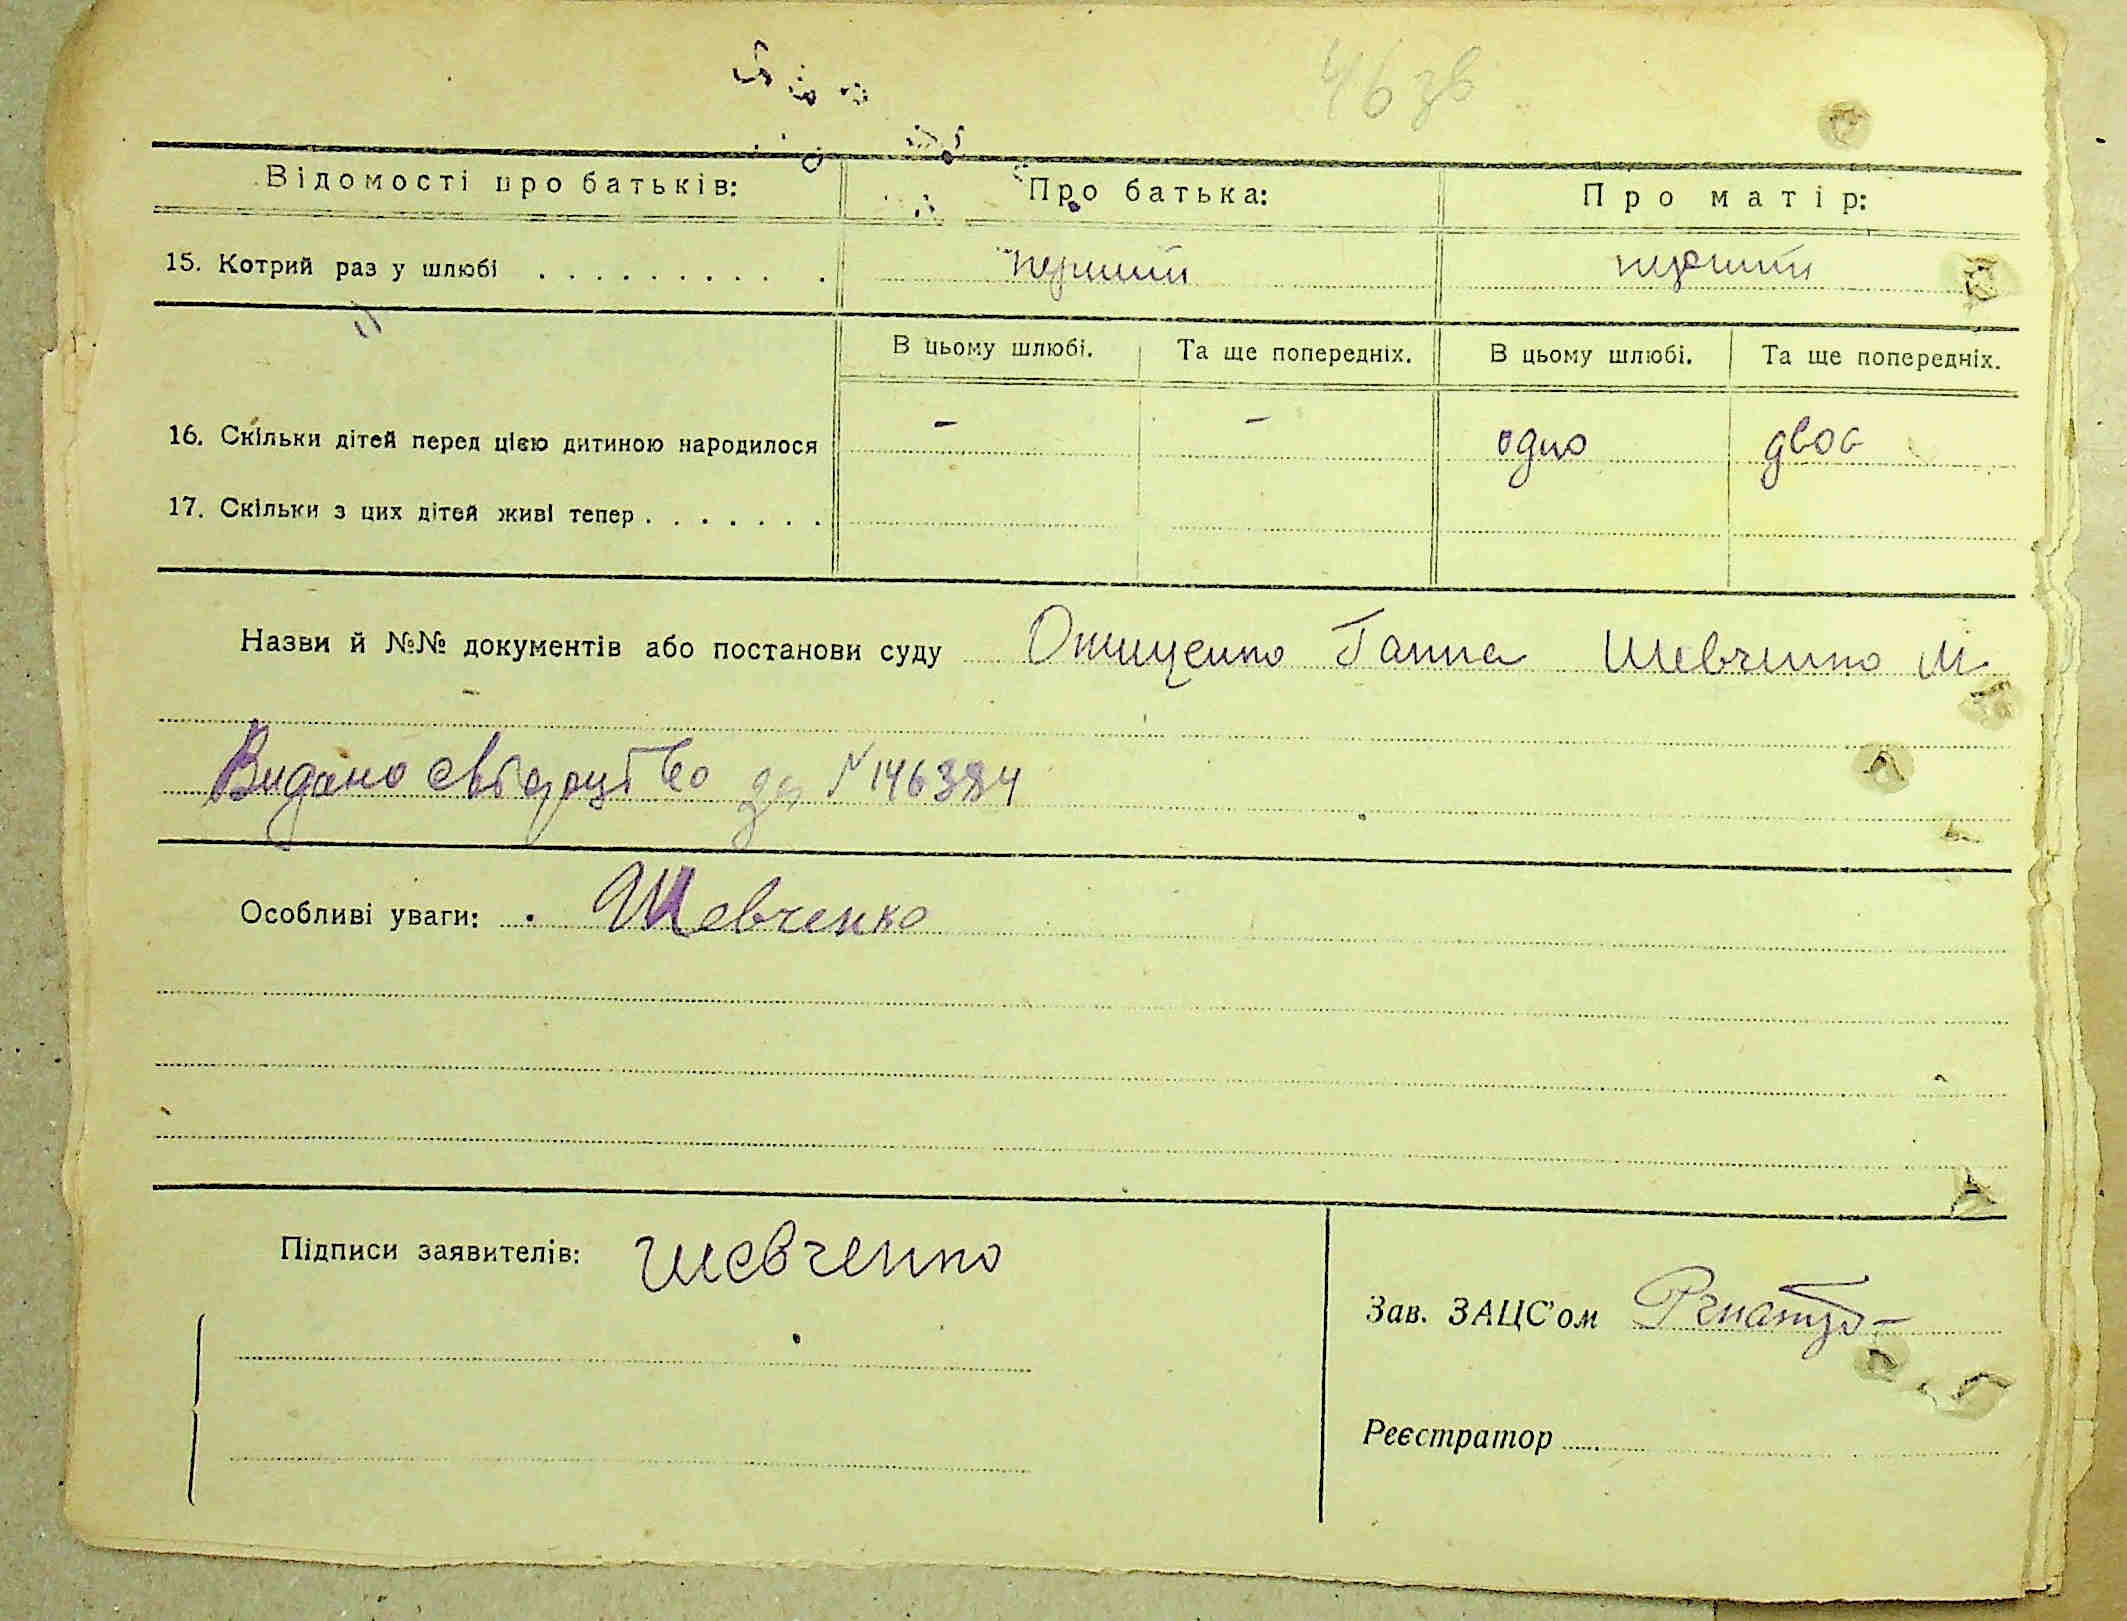 46 зв
Відомості про батьків: Про батька: Про матір:
15. Котрий раз у шлюбі . . . . . . . . . . перший перший
В цьому шлюбі. Та ще попередніх. В цьому шлюбі. Та ще попередніх.
16. Скільки дітей перед цією дитиною народилося - - одно двоє
17. Скільки з цих дітей живі тепер . . . . . . .
Назви й №№ документів або постанови суду Онищенко Ганна Шевченко М
Видано свідоцтво за № 146384
Особливі уваги: Шевченко
Підписи заявителів: Шевченко
Зав. ЗАЦС'ом
Реєстратор